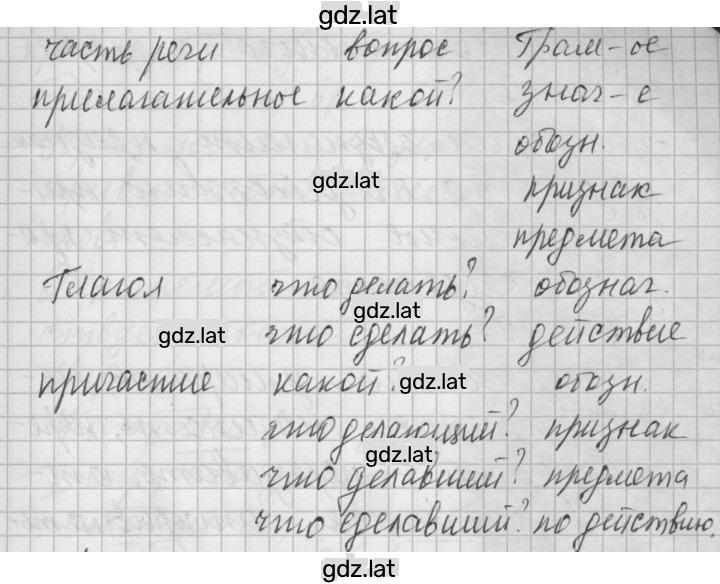 gdz.lat
часть речи вопрос Грам-ое
прилагательное какой? знач-е
обозн.
gdz.lat
признак
предмета
Глагол что делать? обознач.
gdz.lat
gdz.lat что сделать? действие
причастие какой? gdz.lat обозн.
что делающий? признак
gdz.lat
что делавший? предмета
что сделавший? по действию.
gdz.lat